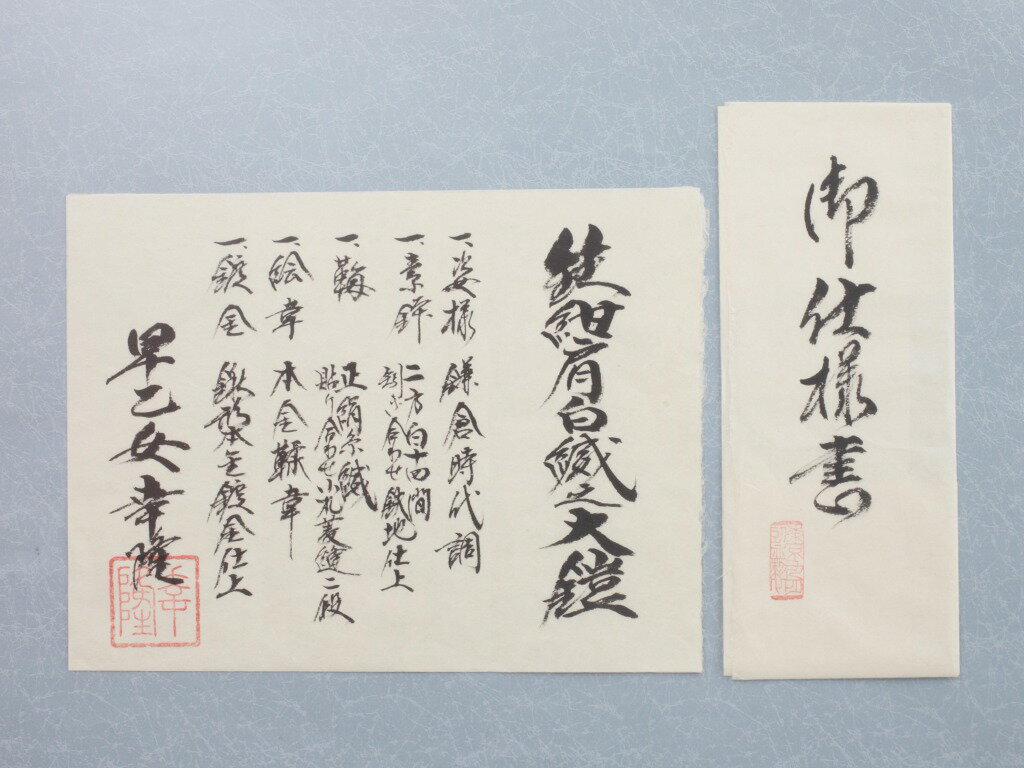 御仕様書
紺肩白縅之大鎧
一、姿様 鎌倉時代調
一、素鉢 二方白十四間
矧ぎ合わせ鉄地仕上
一、 正絹糸縅
貼り合わせ小札菱縫二段
一、絵韋 本金 韋
一、鍍金 本金鍍金仕上
早乙女幸隆
幸隆